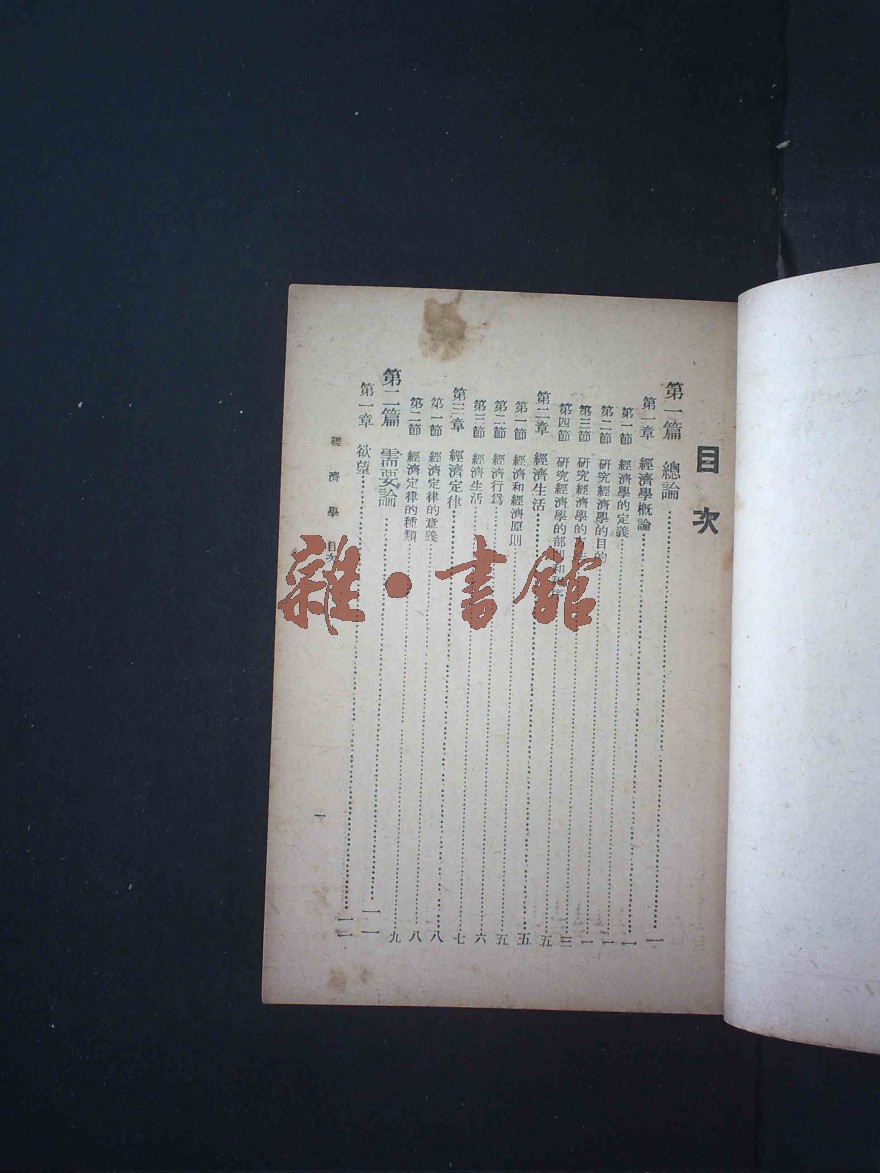 目次
第一篇 總論 一
第一章 經濟學概論 一
第一節 經濟學的定義 一
第二節 研究經濟學的目的 一
第三節 研究經濟學的 三
第四節 研究經濟學的部 五
第二章 經濟生活 五
第一節 經濟和經濟原則 五
第二節 經濟行爲 六
第三節 經濟生活 七
第三章 經濟定律 八
第一節 經濟定律的意義 八
第二節 經濟定律的種類 九
第二篇 需要論 一一
第一章 欲望 一一
經濟學 目次
一
雜·書館